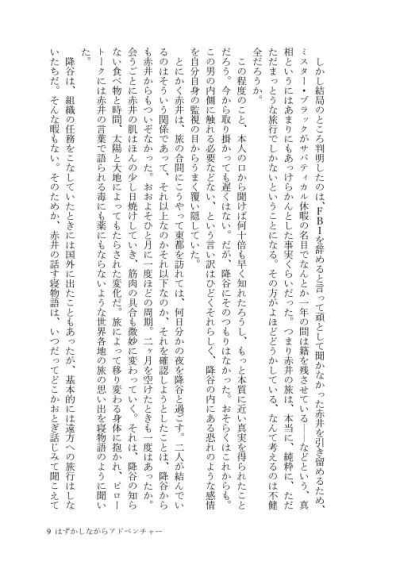 しかし結局のところ判明したのは、FBIを辞めると言って頑として聞かなかった赤井を引き留めるため、
ミスター・ブラックがサバティカル休暇の名目でなんとか一年の間は籍を残させている――などという、真
相というにはあまりにもあっけらかんとした事実くらいだった。つまり赤井の旅は、本当に、純粋に、ただ
ただまっとうな旅行でしかないということになる。その方がよほどどうかしている、なんて考えるのは不健
全だろうか。
この程度のこと、本人の口から聞けば何十倍も早く知れたろうし、もっと本質に近い真実を得られたこと
だろう。今から取り掛かっても遅くはない。だが、降谷にそのつもりはなかった。おそらくはこれからも。
この男の内側に触れる必要などない、という言い訳はひどくそれらしく、降谷の内にある恐れのような感情
を自分自身の監視の目からうまく覆い隠していた。
とにかく赤井は、旅の合間にこうやって東都を訪れては、何日分かの夜を降谷と過ごす。二人が結んでい
るのはそういう関係であって、それ以上なのかそれ以下なのか、それを確認しようとしたことは、降谷から
も赤井からもついぞなかった。おおよそひと月に一度ほどの周期。二ヶ月を空けたときも一度はあったか。
会うごとに赤井の肌はほんの少し日焼けしていき、筋肉の具合も微妙に変わっていく。それは、降谷の知ら
ない食べ物と時間、太陽と大地によってもたらされた変化だ。旅によって移り変わる身体に抱かれ、ピロー
トークには赤井の言葉で語られる毒にも薬にもならないような世界各地の旅の思い出を寝物語のように聞い
た。
降谷は、組織の任務をこなしていたときには国外に出たこともあったが、基本的には遠方への旅行はしな
いたちだ。そんな暇もない。そのためか、赤井の話す寝物語は、いつだってどこかおとぎ話じみて聞こえて
9 はずかしながらアドベンチャー